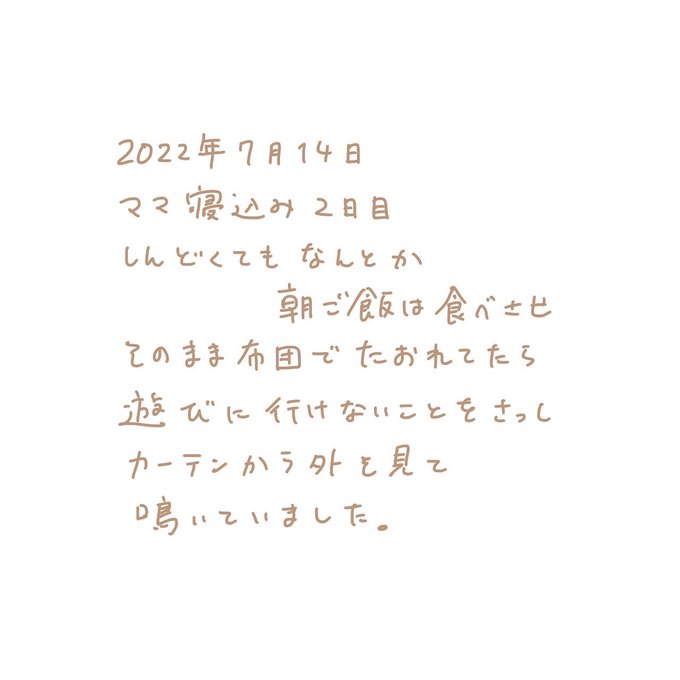 2022年7月14日
ママ寝込み2日目
しんどくても なんとか
朝ご飯は食べさせ
そのまま布団でたおれてたら
遊びに行けないことをさっし
カーテンから外を見て
鳴いていました。